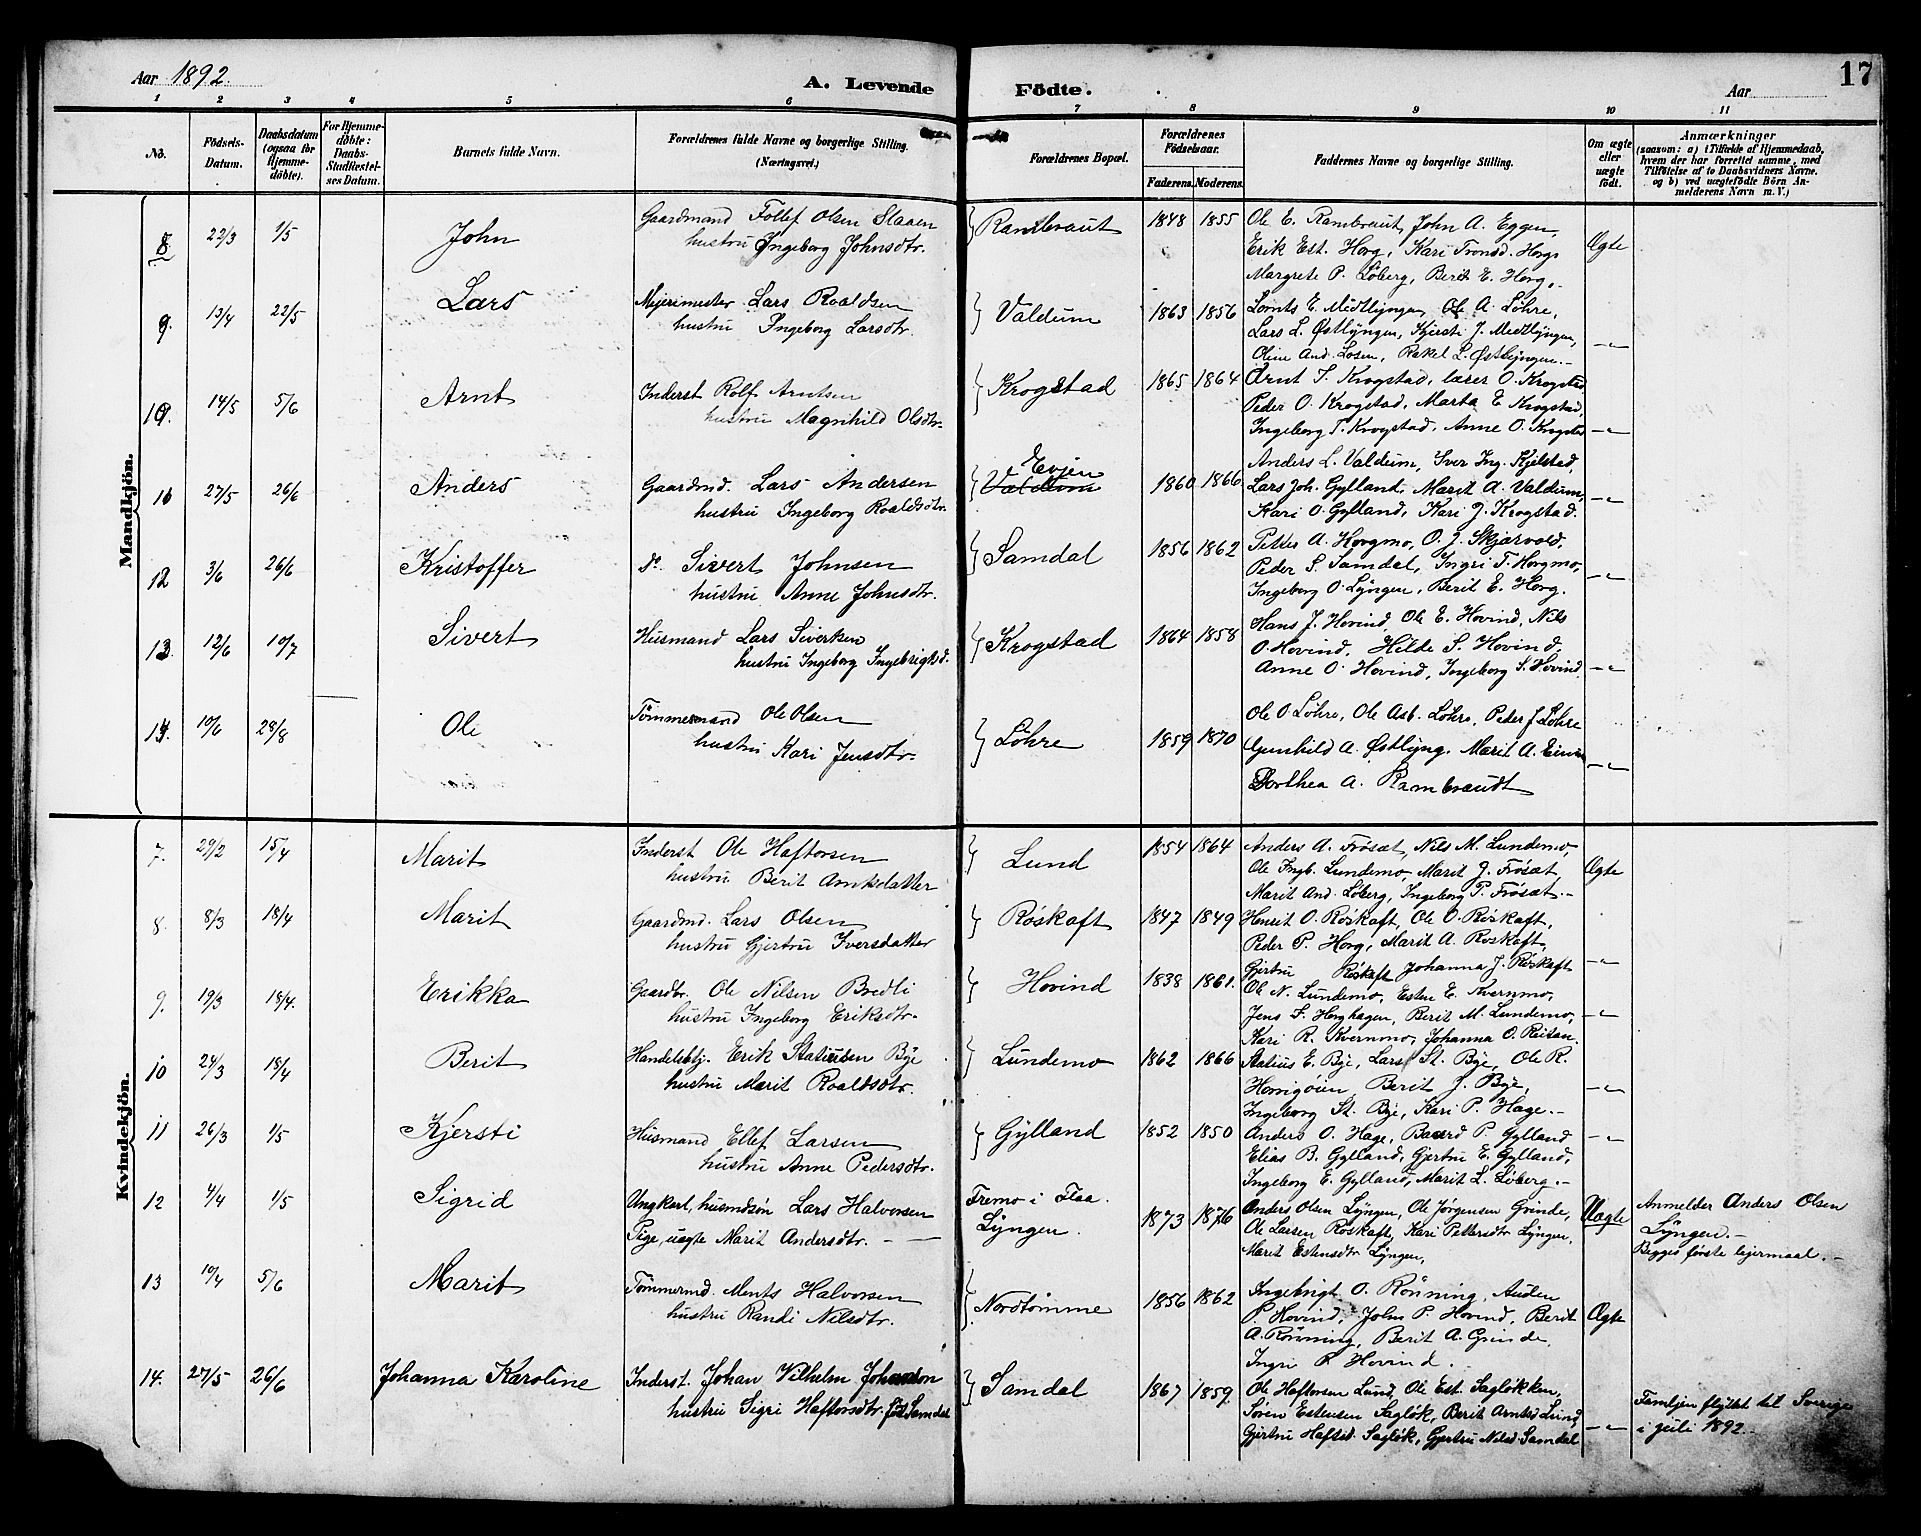 Aar 1892.
A. Levende Födte.
Aar
17
1 2 3 4 5 6 7 8 9 10 11
No.
Födsels-Datum.
Daabsdatum (ogsaa for Hjemme-döbte).
For Hjemme-döbte: Daabs-Stadfæstel-ses Datum.
Barnets fulde Navn.
Forældrenes fulde Navne og borgerlige Stilling. (Næringsvei.)
Forældrenes Bopæl.
Forældrenes Födselsaar.
Faderens. Moderens.
Faddernes Navne og borgerlige Stilling.
Om ægte eller uægte födt.
Anmærkninger
(saasom: a) i Tilfælde af Hjemmedaab,
hvem der har forrettet samme, med
Tilföielse af to Daabsvidners Navne.
og b) ved uægtefödte Börn An-
melderens Navn m. V.)
Mandkjön.
8. 22/3 1/5 John
Gaardmand Follef Olsen Slaaen
hustru Ingeborg Johnsdtr.
Rambraut 1848 1855
Ole E. Rambraut, John A. Eggen,
Erik Est. Horg, Kari Tronsd. Horg,
Margrete P. Löberg, Berit E. Horg.
Ægte
9. 13/4 22/5 Lars
Mejerimester Lars Roaldsen
hustru Ingeborg Larsdtr.
Valdum 1863 1856
Lornts E. Midtlyngen, Ole A. Löhre,
Lars L. Østlyngen, Kjersti J. Medtlyngen,
Oline And. Losen, Rakel L. Østlyngen.
-"-
10. 14/5 5/6 Arnt
Inderst Rolf Arntsen
hustru Magnhild Olsdtr.
Krogstad 1865 1864
Arnt S. Krogstad, lærer O. Krogstad
Peder O. Krogstad, Marta E. Krogstad,
Ingeborg T. Krogstad, Anne O. Krogstad
-"-
11 27/5 26/6 Anders
Gaardmd. Lars Andersen
hustru Ingeborg Roaldsdtr.
Evjen
Valdum 1860 1866
Anders L. Valdum, Iver Ing. Kjelstad,
Lars Joh. Gylland, Marit A. Valdum,
Kari O. Gylland, Kari J. Krogstad.
-"-
12 3/6 26/6 Kristoffer
do. Sivert Johnsen
hustru Anne Johnsdtr.
Samdal 1856 1862
Petter A. Horgmo, O. J. Skjærvold,
Peder S. Samdal, Ingri T. Horgmo,
Ingeborg O. Lyngen, Berit E. Horg.
-"-
13. 12/6 10/7 Sivert
Husmand Lars Sivertsen
hustru Ingeborg Ingebrigtsd.
Krogstad 1864 1858
Hans J. Hovind, Ole E. Hovind, Nils
O. Hovind, Hilde S. Hovind,
Anne O. Hovind, Ingeborg S. Hovind.
-"-
14. 10/6 28/8 Ole
Tömmermand Ole Olsen
hustru Kari Jensdtr.
Löhre 1859 1870
Ole O. Löhre, Ole Asb. Löhre, Peder J. Löhre
Gunhild A. Østlyng, Marit A.
Dorthea A. Rambraudt
-"-
Kvindekjön.
7. 29/2 15/4 Marit
Inderst Ole Haftorsen
hustru Berit Arntsdatter
Lund 1854 1864
Anders A. Frösæt, Nils M. Lundemo,
Ole Ingb. Lundemo, Marit J. Frösæt,
Marit And. Löberg, Ingeborg P. Frösæt.
Ægte
8. 8/3 18/4 Marit
Gaardmd. Lars Olsen
hustru Gjertru Iversdatter
Röskaft 1847 1849
Henrit O. Röskaft, Ole O. Röskaft,
Peder P. Horg, Marit A. Roskaft,
Gjertru Röskaft Johanna J. Röskaft
-"-
9. 19/3 18/4. Erikka
Gaardbr. Ole Nilsen Bredli
hustru Ingeborg Eriksdtr.
Hovind 1838 1861.
Ole N. Lundemo, Esten E. Kvernmo,
Jens F. Horghagen, Berit M. Lundemo,
Kari R. Kvernmo, Johanna O. Reitan.
-"-
10 24/3 18/4 Berit
Handelsbtj. Erik Statiusen Bye
hustru Marit Roaldsdtr.
Lundemo 1862 1866
Statius E. Bye, Lars St. Bye, Ole R.
Horrigöien Berit J. Bye,
Ingeborg St. Bye, Kari P. Hage.
-"-
11 26/3 1/5 Kjersti
Husmand Ellef Larsen
hustru Anne Pedersdtr.
Gylland 1852 1850
Anders O. Hage, Baard P. Gylland
Elias B. Gylland, Gjertru E. Gylland,
Ingeborg E. Gylland, Marit L. Löberg.
-"-
12 4/4 1/5 Sigrid
Ungkarl, husmdsön Lars Halvorsen
Pige, uægte Marit Andersdtr.
Fremo i Flaa
Lyngen. 1873 1876
Anders Olsen Lyngen, Ole Jørgensen Grinde,
Ole Larsen Roskaft, Kari Pettersdtr Lyngen,
Marit Estensdtr Lyngen,
Uægte
Anmelder Anders Olsen
Lyngen.
Begges første lejermaal.
13 10/4 5/6 Marit
Tömmermd. Ments Halvorsen
hustru Randi Nilsdtr.
Nordtömme 1856 1862
Ingebrigt O. Rönning, Auden
P. Hovind, John P. Hovind, Berit
A. Rönning, Berit A. Grinde,
Ingri P. Hovind.
Ægte
14. 27/5 26/6 Johanna Karoline
Inderst. Johan Vilhelm
hustru Sigri Haftorsdtr. föd Samdal
Samdal 1867 1859.
Ole Haftorsen Lund, Ole Est. Saglökken,
Sören Estensen Saglök, Berit Arntsd Lund
Gjertru Haftsd. Saglök, Gjertru Nilsd Samdal
-"-
Familjen flyttet til Sverige
i juli 1892.